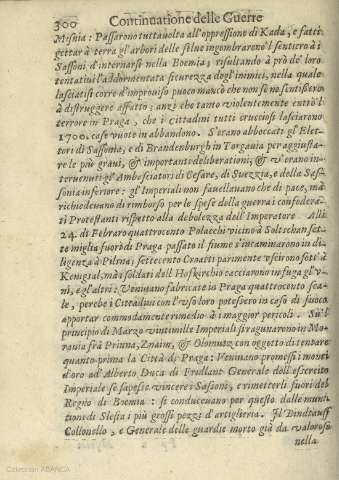 300 Continuatione delle Guerre
Misnia: Passarono tuttauolta all'oppressione di Kada, e fatti
gettar à terra gl'arbori delle selue ingombrarono l'sentiero à i
Sassoni d'internarsi nella Boemia; risultando à prò de' loro
tentatiui l'addormentata sicurezza degl'inimici, nella quale
lasciatisi correr d'improuiso puoco mancò che non se ne sentissero
à distruggere affatto; anzi che tanto violentemente entrò'l
terrore in Praga, che i cittadini tutti crucciosi lasciarono
1700. case vuote in abbandono. S'erano abboccati gl'Elet-
tori di Sassonia, e di Brandenburgh in Torgauia per aggiusta-
re le più graui, & importanti deliberationi, & v'erano in-
teruenuti gl'Ambasciatori di Cesare, di Suezzia, e della Sas-
sonia inferiore: gl'Imperiali non fauellauano che di pace, mà
richiedeuano di rimborso per le spese della guerra i confedera-
ti Protestanti rispetto alla debolezza dell'Imperatore Alli
24. di Febraro quattrocento Polacchi vicino à Soltschan set-
te miglia fuori di Praga passato il fiume s'incaminarono in di-
ligenza à Pilsna; settecento Croatti parimente vscirono sott'à
Kenigsal, mà i soldati dell'Hoffkirchio cacciarono in fuga gl'v-
ni, e gl'altri: Veniuano fabricate in Praga quattrocento sca-
le, perche i Cittadini con l'vso loro potessero in caso di fuoco
apportar commodamente rimedio à i maggior pericoli. Su'l
principio di Marzo vintimille Imperiali si ragunarono in Mo-
rauia frà Prinna, Znaim, & Olomutz con oggetto di tentare
quanto prima la Città di Praga: Veniuano promessi i monti
d'oro ad Alberto Duca di Fridlant Generale dell'essercito
Imperiale se sapesse vincere i Sassoni, e rimetterli fuori del
Regno di Boemia: si conduceuano per questo dalle muni-
tione di Slesia i più grossi pezzi d'artiglieria. Il Bindtauff
Collonello, e Generale delle guardie morto già da valoroso
nella
Colección ABANCA